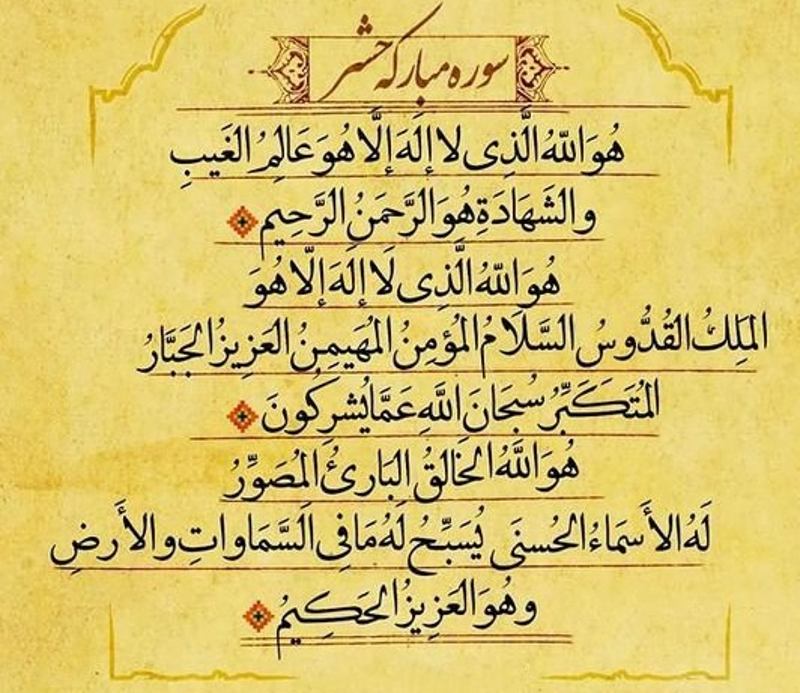 سوره مبارکه حشر
هُوَ اللّهُ الَّذِی لا إِلَهَ إِلَّا هُوَ عَالِمُ الغَیبِ
والشَهَادَةِ هُوَ الرَّحمَنُ الرَّحِیم
هُوَ اللّهُ الَّذِی لَا إِلَهَ إِلَّا هُوَ
المَلِكُ القُدُّوسُ السَّلَامُ المُؤمِنُ المُهَیمِنُ العَزِیزُ الجَبَّارُ
المُتَكَبِّرُ سُبحَانَ اللَّهِ عَمَّا یُشرِكُونَ
هُوَ اللَّهُ الخَالِقُ البَارِئُ المُصَوِّرُ
لَهُ الأَسمَاءُ الحُسنَی یُسَبِّحُ لَهُ مَا فِی السَّمَاواتِ والأَرضِ
وهُوَ العَزِیزُ الحَكِیمُ